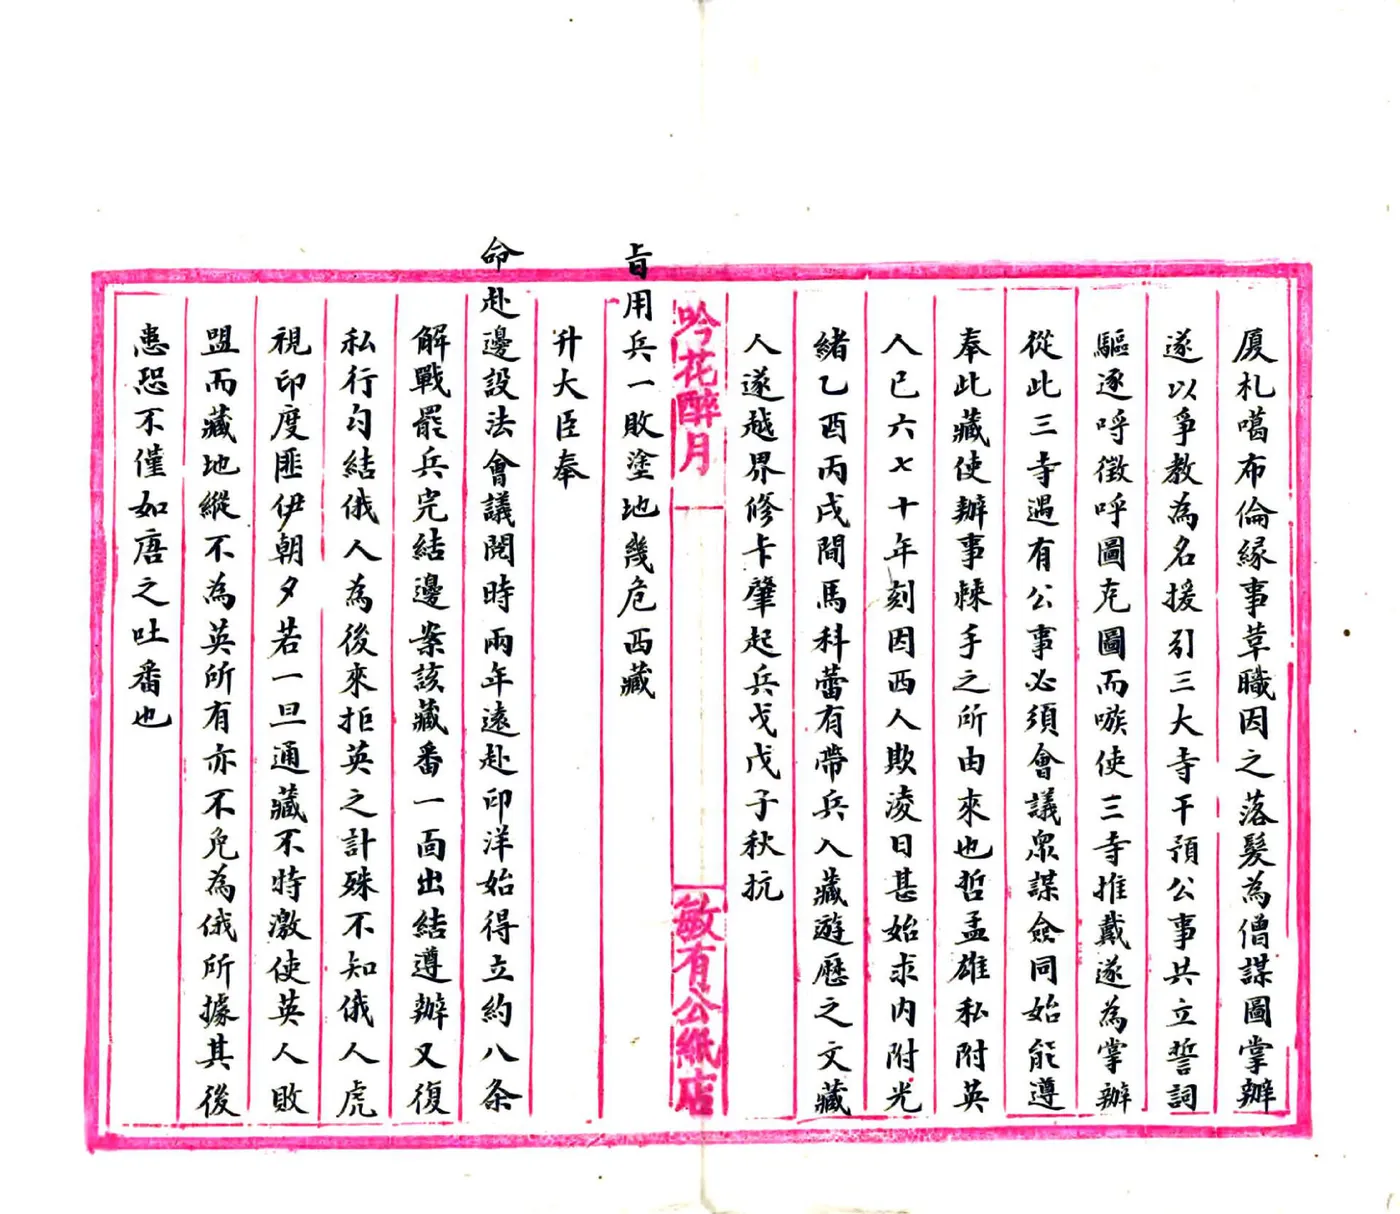 廈札噶布倫緣事草職因之落髮為僧謀圖掌辦
遂以爭教為名援引三大寺干預公事共立誓詞
驅逐呼徵呼圖克圖而嗾使三寺推戴遂為掌辦
從此三寺遇有公事必須會議眾謀僉同始能遵
奉此藏使辦事棘手之所由來也哲孟雄私附英
人已六七十年刻因西人欺凌日甚始求內附光
緒乙酉丙戌間馬科蕾有帶兵入藏遊歷之文藏
人遂越界修卡肇起兵戈戊子秋抗
吟花醉月
敏有公紙店
旨用兵一敗塗地幾危西藏
升大臣奉
命赴邊設法會議閱時兩年遠赴印洋始得立約八条
解戰罷兵完結邊案該藏番一面出結遵辦又復
私行勾結俄人為後來拒英之計殊不知俄人虎
視印度匪伊朝夕若一旦通藏不時激使英人敗
盟而藏地縱不為英所有亦不免為俄所據其後
患恐不僅如唐之吐番也